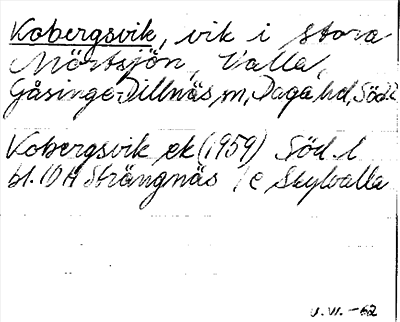 Kobergsvik, vik i Stora
Mörtsjön, Valla,
Gåsinge-Dillnäs sn, Daga hd, Söd.l
Kobergsvik ek (1959) Söd. l
bl. 10 H Strängnäs /e Skylvalla
U.VI. -62